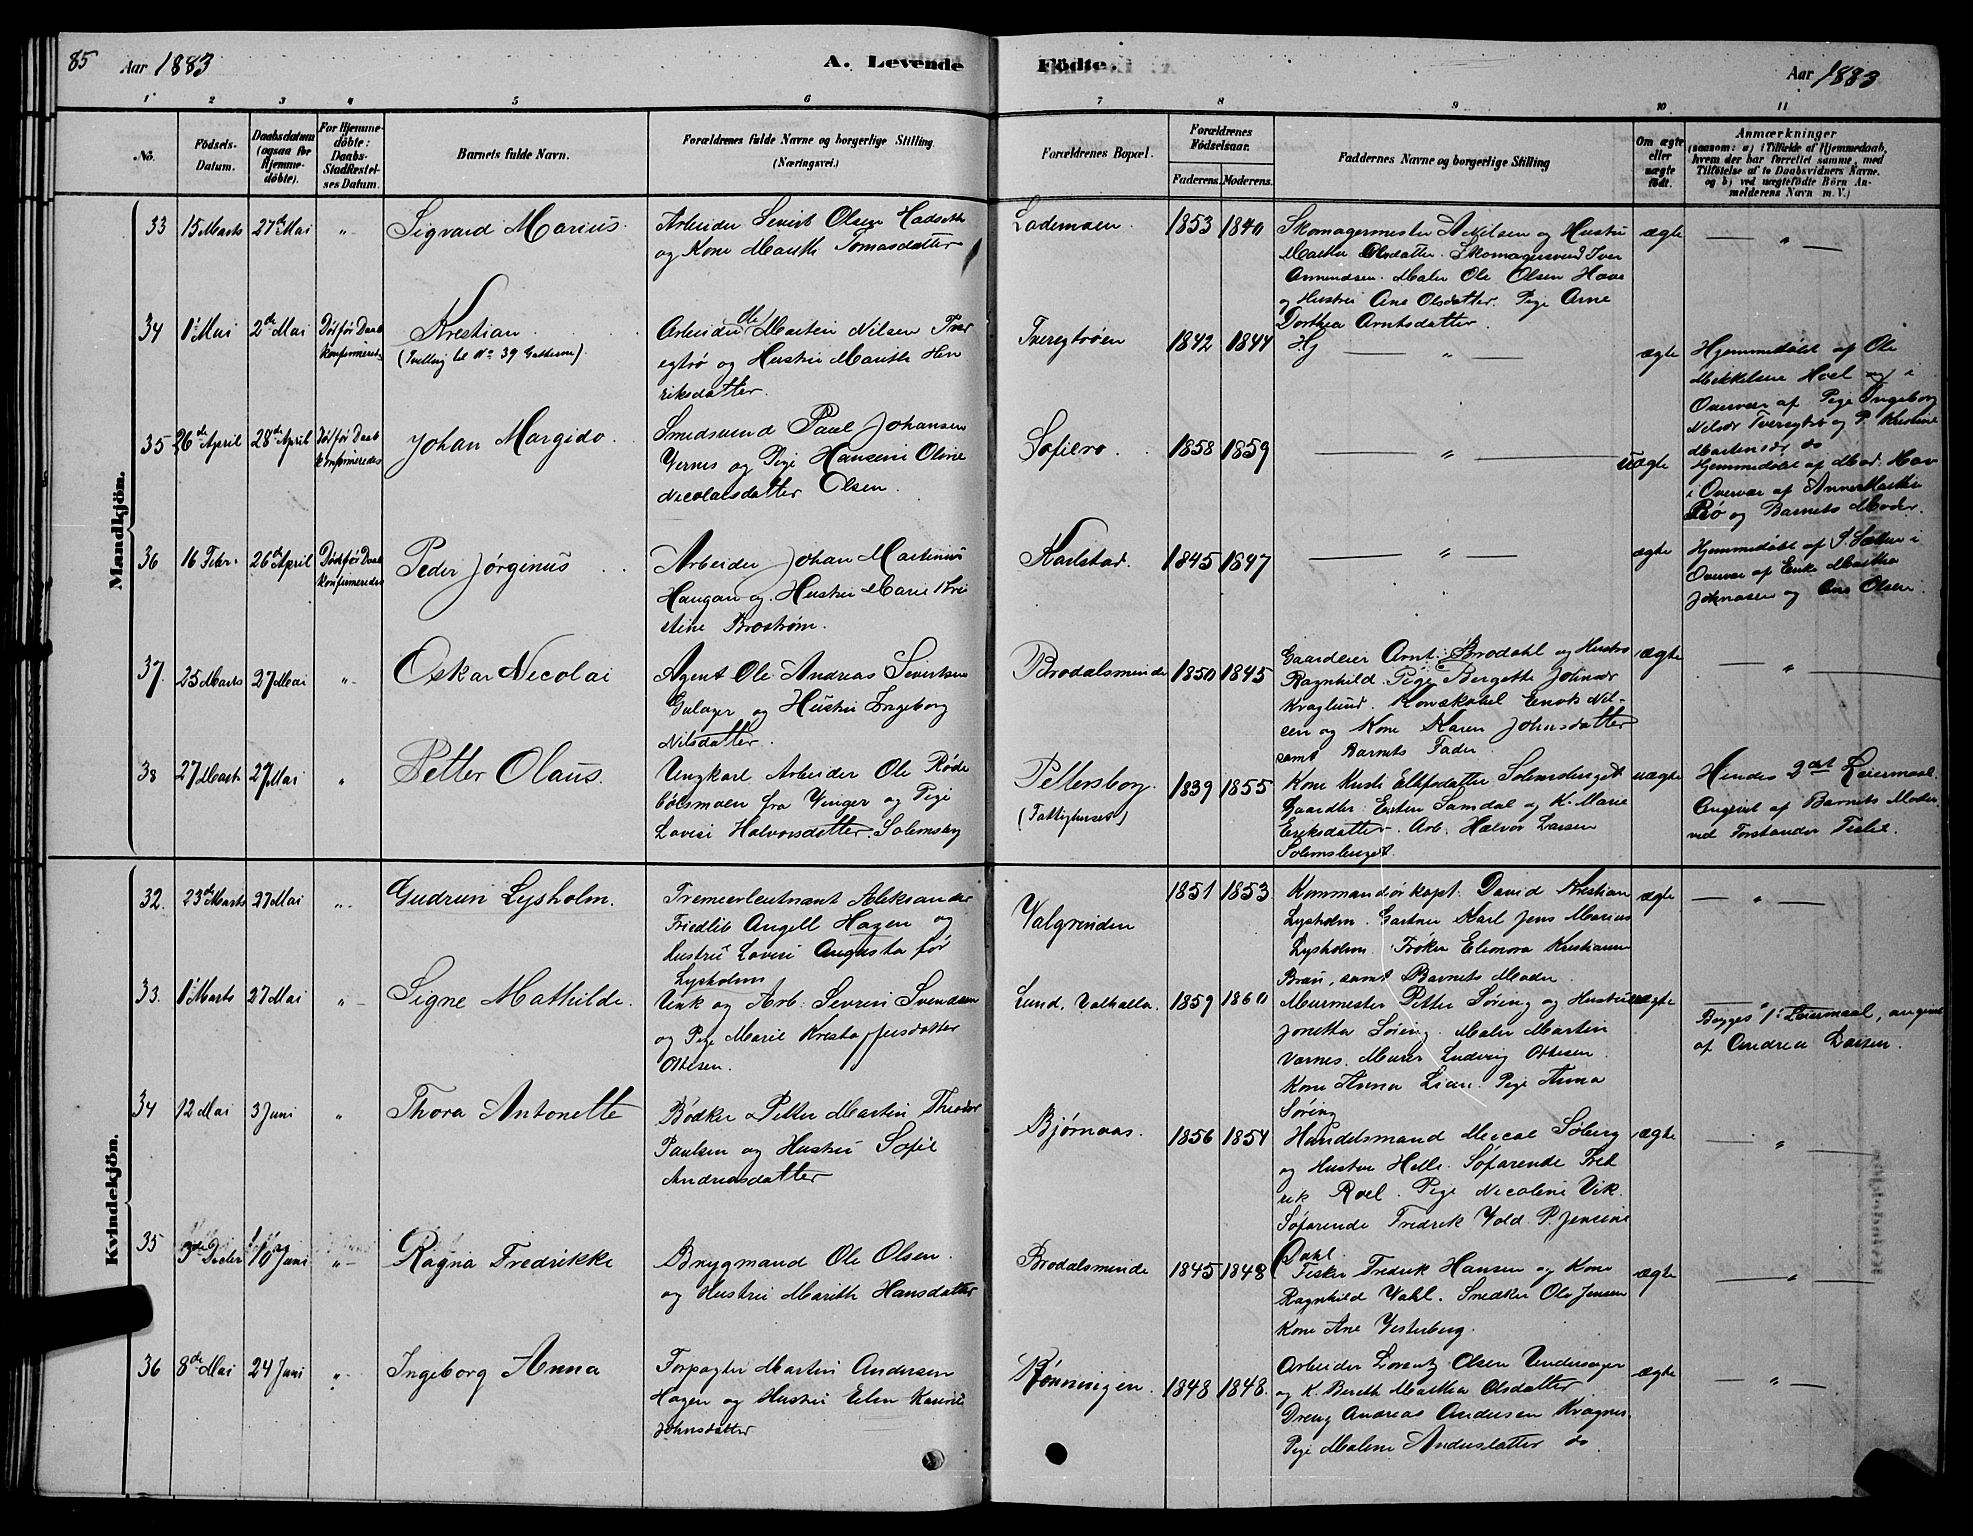 85 Aar 1883 A. Levende Födte. Aar 1883
1 2 3 4 5 6 7 8 9 10 11
No.
Födsels-Datum.
Daabsdatum (ogsaa for Hjemme-döbte).
For Hjemme-döbte: Daabs-Stadfæstel-ses Datum.
Barnets fulde Navn.
Forældrenes fulde Navne og borgerlige Stilling.
(Næringsvei.)
Forældrenes Bopæl.
Forældrenes Födselsaar.
Faderens. Moderens.
Faddernes Navne og borgerlige Stilling
Om ægte eller uægte födt.
Anmærkninger
(saasom: a) i Tilfælde af Hjemmedaab,
hvem der har forrettet samme, med
Tilföielse af to Daabsvidners Navne.
og b) ved uægtefödte Börn An-
melderens Navn m. V.)
Mandkjön.
33 15 Marts 27de Mai " Sigvard Marius.
Arbeider Sivert Olsen Hadseth
og Kone Marith Tomasdatter
Lademoen. 1853 1840
Skomagermester A Nilsen og Hustru
Martha Olsdatter. Skomagersvend Iver
Amundsen. Maler Ole Olsen Have
og Hustru Ane Olsdatter. Pige Arne
Dorthea Arntsdatter.
ægte "
34 1 Mai 2de Mai
konfirmeret
Kristian
(Tvilling til No 39 Gutterne).
Arbeider Ole Martin Nilsen Tver
egtrø og Hustru Marith Hen
riksdatter.
Tveregtrøen 1842 1844 Hj " ægte
Hjemmedøbt af Ole
Mikkelsen Hoel og i
Overvær af Pige Ingeborg
Nilsdr Tveregtrø og P. Kristine
Martinsdr do
35 26de April 28de April
konfirmeredes
Johan Margido.
Smedsvend Paul Johansen
Vernes og Pige Hansine Oline
Nicolaisdatter Olsen.
Sofilro. 1858 1859 " uægte
Hjemmedøbt af Mad. Hav
i Overvær af Anne Martha
Rø og Barnets Moder.
36 16 Febr. 26de April
konfirmeredes
Peder Jørginus
Arbeider Johan Martinius
Haugan og Hustru Marie Kri
stine Brostrøm.
Karlstad. 1845 1847 " ægte
Hjemmedøbt af P. Sæther i
Overvær af Enke Martha
Johnasen og Ane Olsen.
37. 25 Marts 27 Mai " Oskar Nicolai
Agent Ole Andreas Sivertsen
Gulager og Hustru Ingeborg
Nilsdatter.
Brodalsminde 1850 1845
Gaardeier Arnt Brodahl og Hustro
Ragnhild. Pige Bergette Johnsdr
Kraglund. Enok Nil-
sen og Kone Karen Johnsdatter
samt Barnets Fader.
ægte "
38 27 Marts 27 Mai " Petter Olaus.
Ungkarl Arbeider Ole Røde
bølsmoen fra Vinger og Pige
Lovise Halvorsdatter Solemsbg
Pettersborg. (Fattighuset) 1839 1855
Kone Kirsti Ellefsdatter Solemsberget
Samdal og K. Marie
Eriksdatter. Arb. Halvor Larsen
Solemsberget.
uægte
Hendes 2det Leiermaal.
Angivet af Barnets Moder
ved Forstander
Kvindekjön.
32. 23de Marts 27 Mai " Gudrun Lysholm.
Premierleutnant Aleksander
Friedlib Angell Hagen og
Hustru Lovise Augusta før
Lysholm
Valgrinden 1851 1853
Kommandørkapt. David Kristian
Lysholm. Gartner Karl Jens Marius
Lysholm. Frøken Elenora Kristianne
Brun, samt Barnets Moder.
ægte "
33. 1 Marts 27 Mai " Signe Mathilde.
Unk og Arb. Sevrin Svendsen
og Pige Marie Kristoffersdatter
Ottesen.
Lund. Valhalla. 1859 1860
Murmester Petter Søring og Hustru
Jonetta Søring. Maler Martin
Varnes. Murer Ludvig Ottesen.
Kone Anna Lian. Pige Anna
Søring
uægte "
Begges 1ste Leiermaal, angivet
af Andrea Larsen.
34 12 Mai 3 Juni " Thora Antonette
Bødker Petter Martin Theodor
Paulsen og Hustru Sofie
Andreasdatter
Bjørnaas. 1856 1854
Handelsmand Søberg
og Hustru Helle. Søfarende Fred
rik Roel. Pige Nicoline Vik.
Søfarende Fredrik Vold. P. Jensine
Dahl.
ægte "
35 10 Juni " Ragna Fredrikke
Brygmand Ole Olsen.
og Hustru Marith Hansdatter
Brodalsminde 1845 1848
Fisker Fredrik Hansen og Kone
Ragnhild Vahl. Snedker Ole Jensen
Kone Ane Vesterberg.
ægte "
36 8de Mai 24 Juni " Ingeborg Anna
Forpagter Martin Andersen
Hagen og Hustru Elen Kaurie
Johnsdatter
Rønningen. 1848 1848.
Arbeider Lorentz Olsen
og K. Bereth Martha Olsdatter
Dreng Andreas Andersen Kragnes.
Pige Malene Andersdatter do.
ægte "